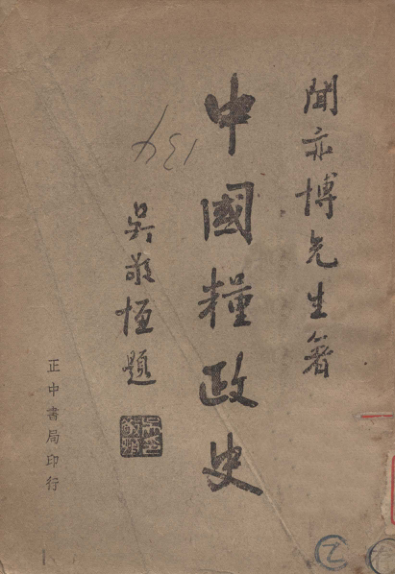 聞亦博先生著
中國糧政史
吳敬恆題
正中書局印行
134